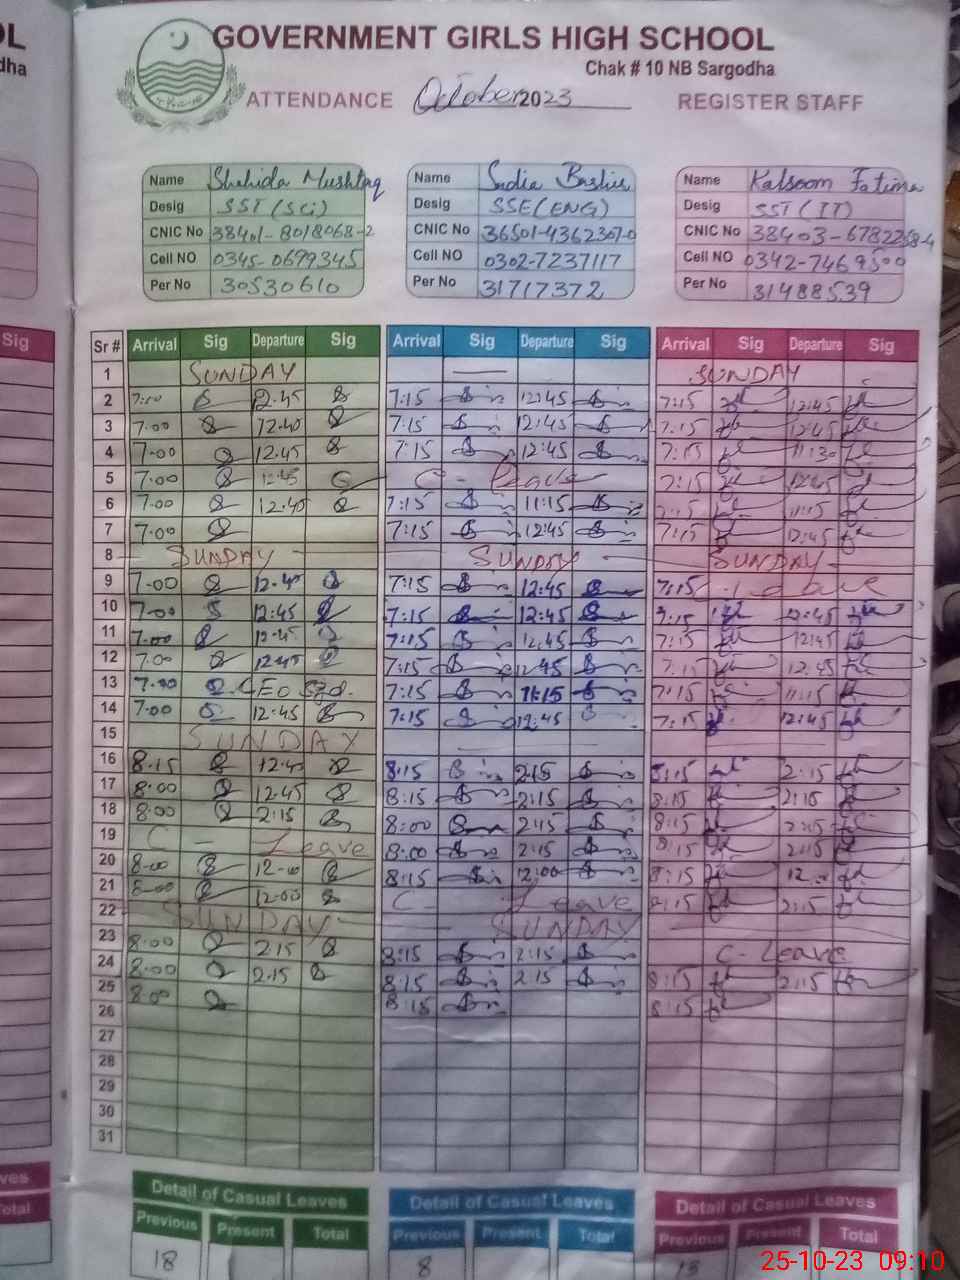 OL
GOVERNMENT GIRLS HIGH SCHOOL
dha
Chak # 10 NB Sargodha
ATTENDANCE October 2023 REGISTER STAFF
Name Shahida Mushtaq Name Sadia Bashir Name Kalsoom Fatima
Desig SST (Sci) Desig SSE (ENG) Desig SST (IT)
CNIC No 38401-8018068-2 CNIC No 36501-4362307-0 CNIC No 38403-6782268-4
Cell NO 0345-0699345 Cell NO 0302-7237117 Cell NO 0342-7469500
Per No 30530610 Per No 31717372 Per No 31488539
Sig Sr # Arrival Sig Departure Sig Arrival Sig Departure Sig Arrival Sig Departure Sig
1 SUNDAY SUNDAY
2 7:00 12.45 7:15 12:45 7:15 12:45
3 7.00 12.40 7:15 12:45 7:15 12:45
4 7.00 12.45 7:15 12:45 7:15 11:30
5 7.00 12:45 C - Leave 7:15 12:45
6 7.00 12.40 7:15 11:15 7:15 11:15
7 7:00 7:15 12:45 7:15 12:45
8 SUNDAY SUNDAY SUNDAY
9 7-00 12.40 7:15 12:45 7:15 Leave
10 7-00 12:45 7:15 12:45 7:15 12:45
11 7.00 12.45 7:15 12.45 7:15 12:45
12 7.00 12.45 7:15 12 45 7:15 12.45
13 7.00 CEO Sgd. 7:15 11:15 7:15 11:15
14 7:00 12:45 7:15 12:45 7:15 12:45
15 SUNDAY
16 8.15 12.40 8:15 2.15 8:15 2:15
17 8:00 12.45 8:15 2:15 8:15 2:15
18 8:00 2:15 8:00 2:15 8:15 2:15
19 C - Leave 8.00 2:15 8:15 2:15
20 8-00 12-00 8:15 12:00 8:15 12
21 8-00 12:00 C- Leave 8:15 2:15
22 SUNDAY SUNDAY
23 8:00 2.15 8:15 2:15 C- Leave
24 8:00 2.15 8:15 2.15 8:15 2:15
25 8.00 8:15 8:15
26
27
28
29
30
31
ves Detail of Casual Leaves Detail of Casual Leaves Detail of Casual Leaves
Total Previous Present Total Previous Present Total Previous Present Total
18 8 13
25-10-23 09:10